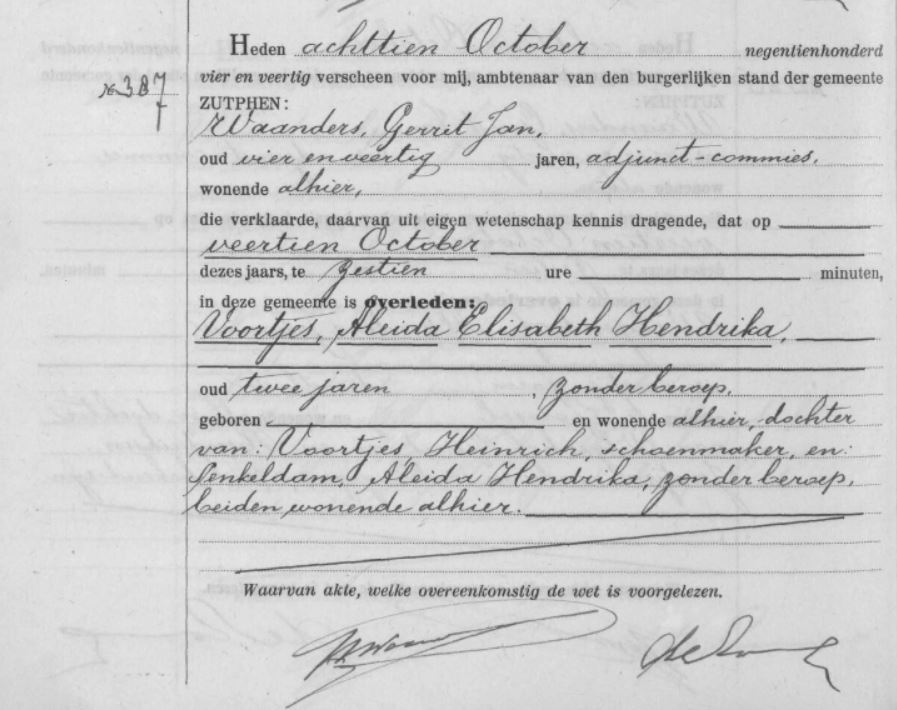 Heden achttien October negentienhonderd
№ 387
vier en veertig verscheen voor mij, ambtenaar van den burgerlijken stand der gemeente
ZUTPHEN:
Waanders, Gerrit Jan,
oud vier en veertig jaren, adjunct-commies,
wonende alhier,
die verklaarde, daarvan uit eigen wetenschap kennis dragende, dat op
veertien October
dezes jaars, te zestien ure minuten,
in deze gemeente is overleden:
Voortjes, Aleida Elisabeth Hendrika,
oud twee jaren, zonder beroep,
geboren en wonende alhier, dochter
van: Voortjes, Heinrich, schoenmaker, en:
Senkeldam, Aleida Hendrika, zonder beroep,
beiden wonende alhier.
Waarvan akte, welke overeenkomstig de wet is voorgelezen.